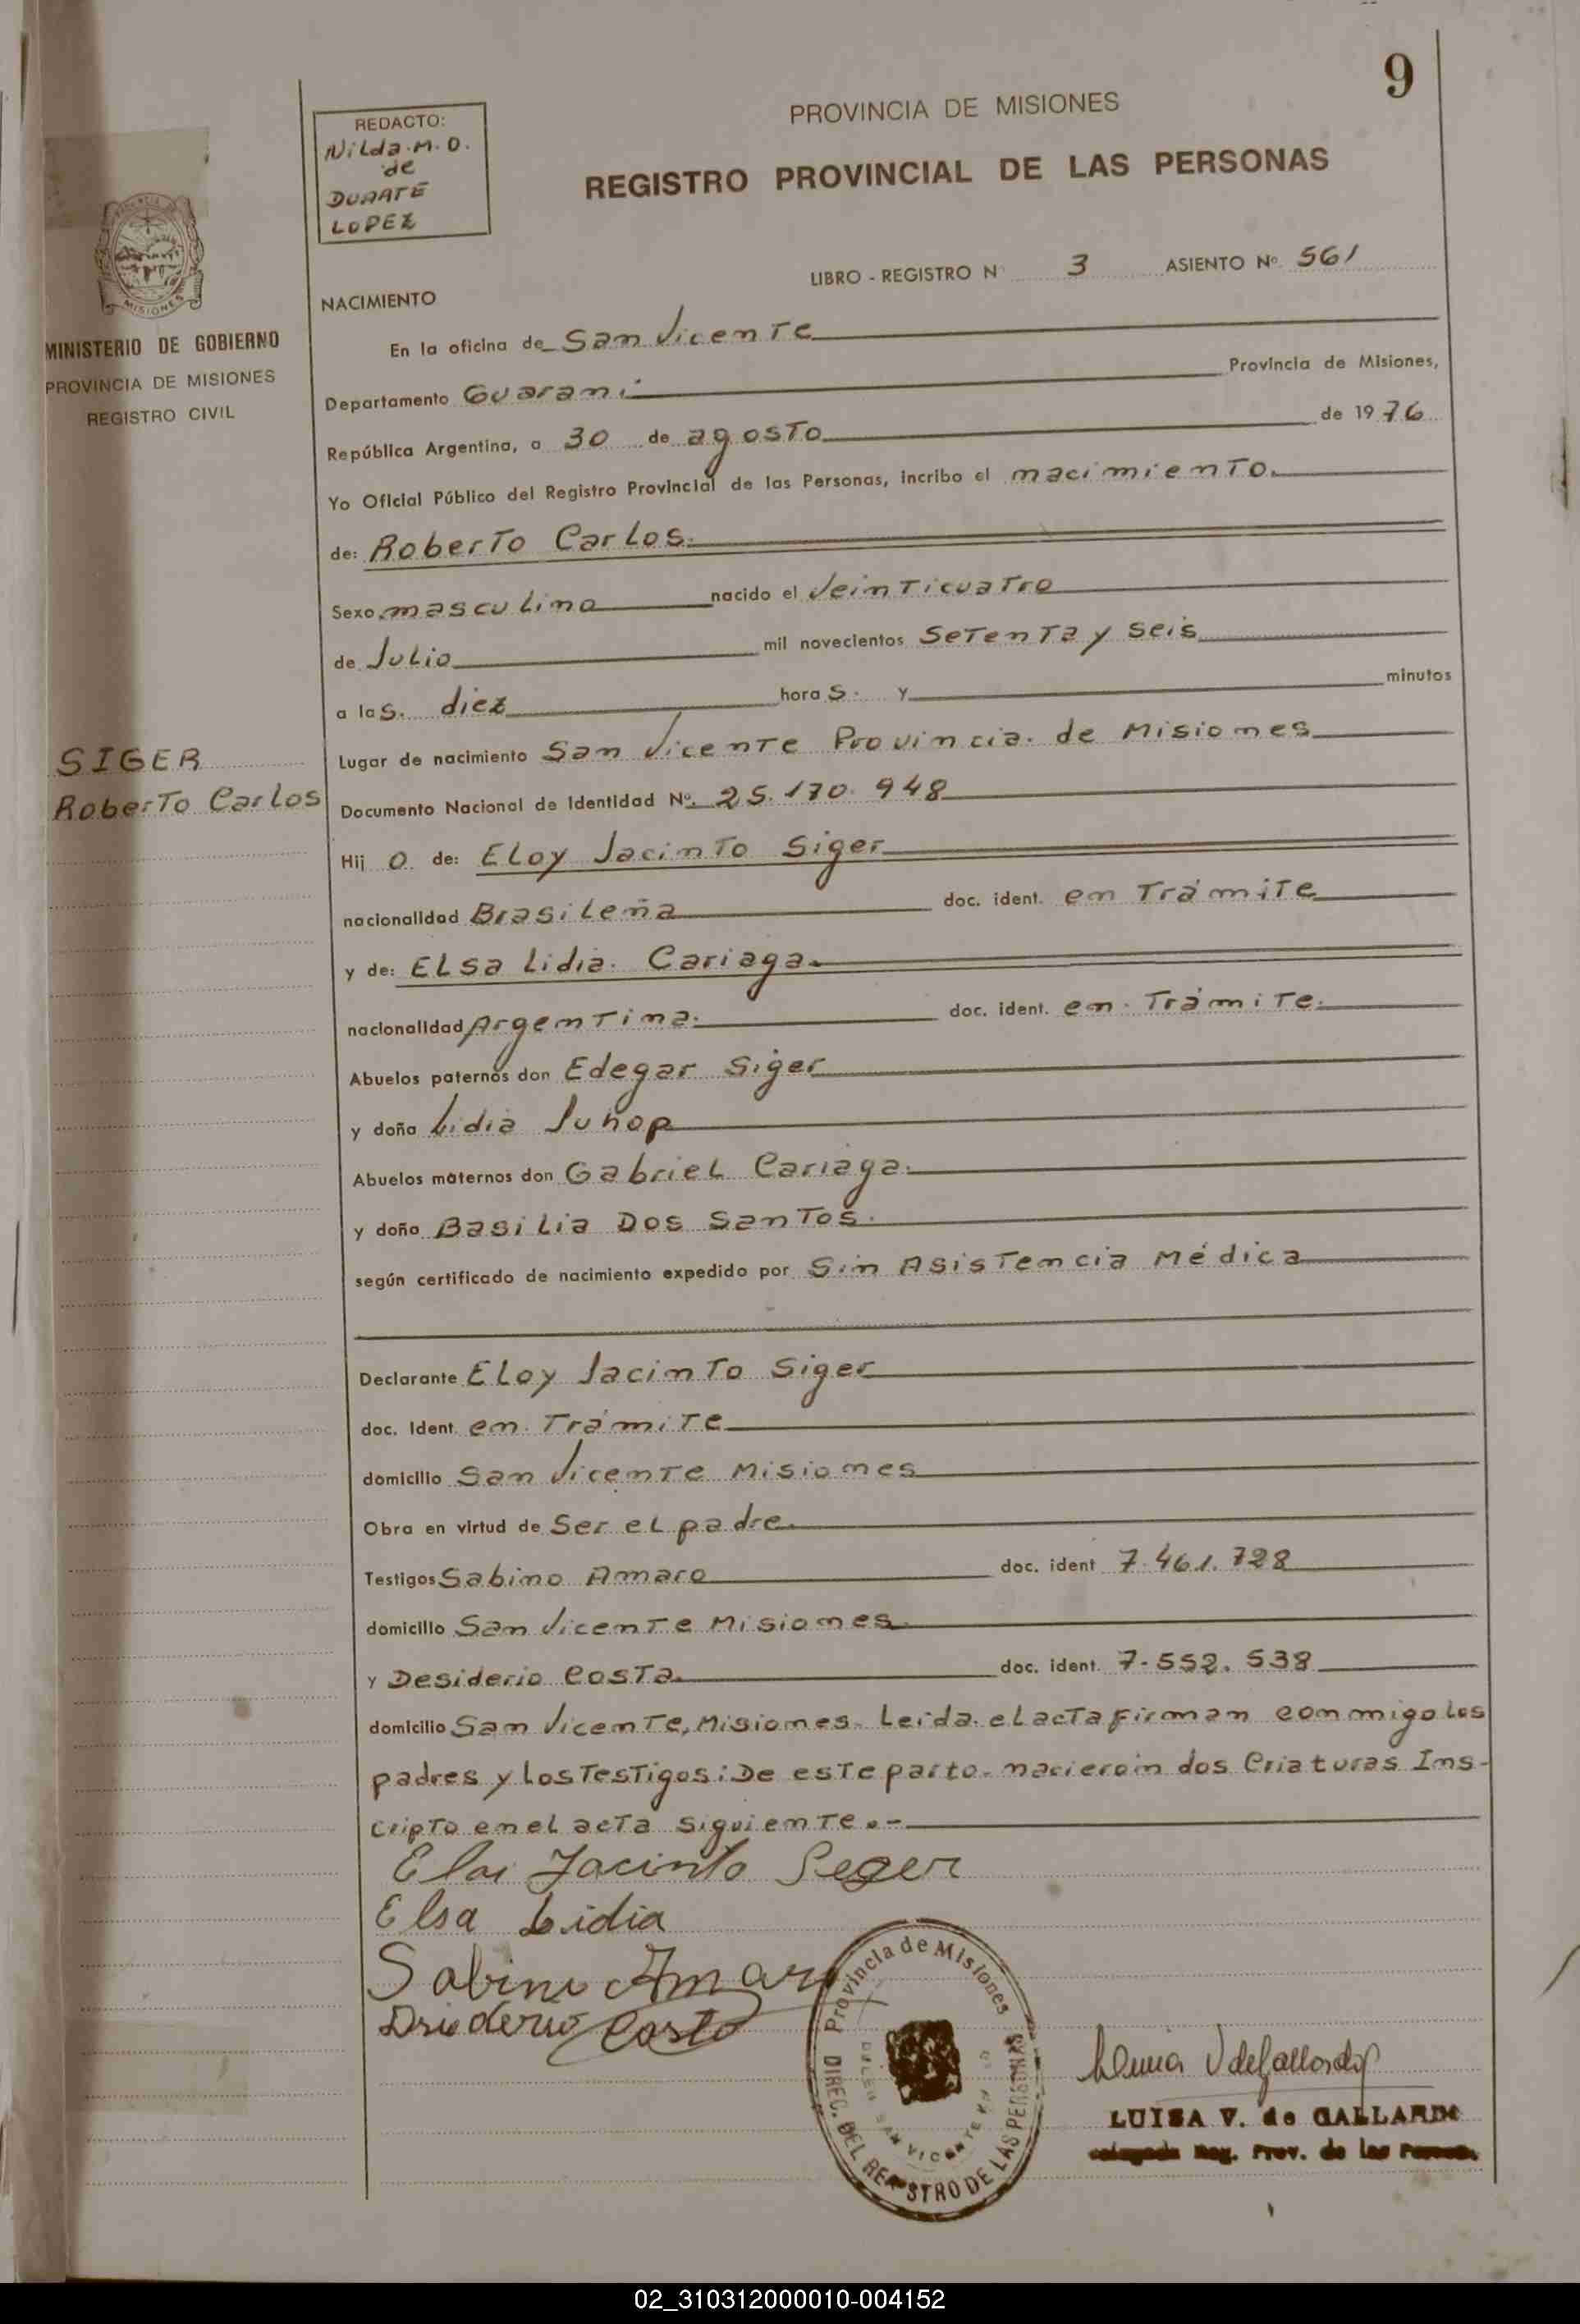 9
PROVINCIA DE MISIONES
REDACTO:
Nilda.M.O.
de
DUARTE
LOPEZ
REGISTRO PROVINCIAL DE LAS PERSONAS
LIBRO - REGISTRO N° 3 ASIENTO Nº 561
MISIONES
MINISTERIO DE GOBIERNO
PROVINCIA DE MISIONES
REGISTRO CIVIL
NACIMIENTO
En la oficina de San Vicente
Departamento Guaraní Provincia de Misiones,
República Argentina, a 30 de agosto de 1976
Yo Oficial Público del Registro Provincial de las Personas, incribo el nacimiento.
de: Roberto Carlos.
Sexo masculino nacido el Veinticuatro
de Julio mil novecientos Setenta y seis
a las. diez horas. y minutos
Lugar de nacimiento San Vicente Provincia. de Misiones
SIGER
Roberto Carlos
Documento Nacional de Identidad Nº. 25.170.948
Hijo de: Eloy Jacinto Siger
nacionalidad Brasileña doc. ident. en Trámite
y de: Elsa Lidia. Cariaga.
nacionalidad Argentina. doc. ident. en Trámite.
Abuelos paternos don Edegar Siger
y doña Lidia Juhop
Abuelos maternos don Gabriel Cariaga.
y doña Basilia Dos Santos.
según certificado de nacimiento expedido por Sin Asistencia Médica
Declarante Eloy Jacinto Siger
doc. Ident. en Trámite
domicilio San Vicente Misiones
Obra en virtud de Ser el padre.
Testigos Sabino Amaro doc. ident 7.461.728
domicilio San Vicente Misiones
y Desiderio Costa. doc. ident. 7.552.538
domicilio San Vicente, Misiones. Leída. el acta firman conmigo los
padres y los Testigos: De este parto. nacieroin dos Criaturas Ins-
cripto en el acta siguiente.-
Eloi Jacinto Seger
Elsa Lidia
Sabino Amaro
Costa
Provincia de Misiones
DIREC. DEL REGISTRO DE LAS PERSONAS
SAN VICENTE
LUISA V. de GALLARDO
Reg. Prov. de las Person.
02_310312000010-004152